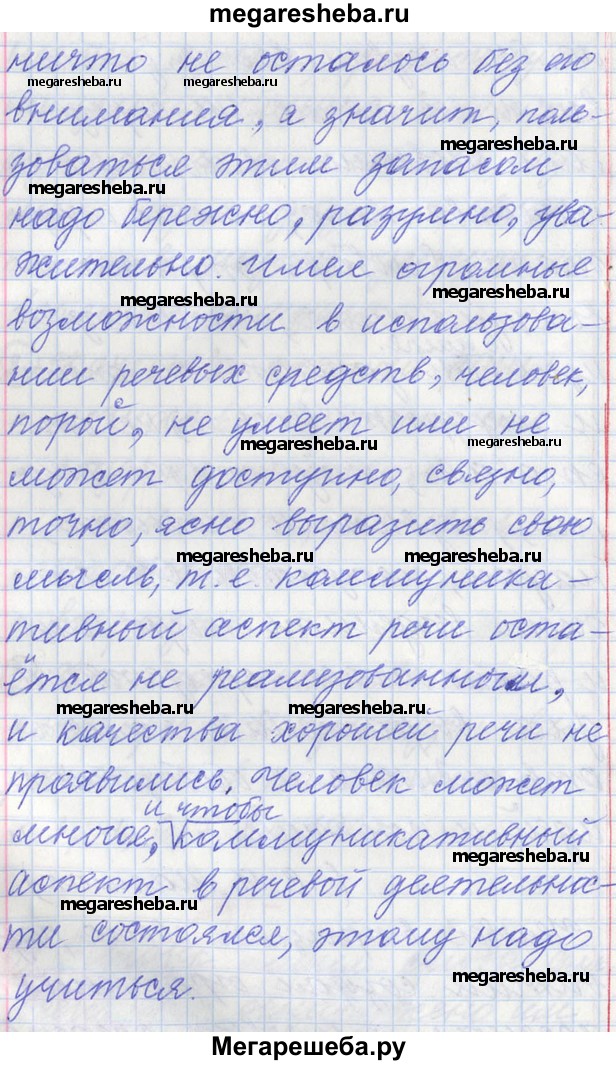 megaresheba.ru
ничто не осталось без его
megaresheba.ru megaresheba.ru
внимания, а значит, поль-
megaresheba.ru
зоваться этим запасом
megaresheba.ru
надо бережно, разумно, ува-
жительно. Имея огромные
megaresheba.ru megaresheba.ru
возможности в использова-
нии речевых средств, человек,
порой, не умеет или не
megaresheba.ru megaresheba.ru
может доступно, связно,
точно, ясно выразить свою
megaresheba.ru megaresheba.ru
мысль, т. е. коммуника-
тивный аспект речи оста-
ётся не реализованным,
megaresheba.ru megaresheba.ru
и качества хорошей речи не
проявились. Человек может
и чтобы
многое, коммуникативный
megaresheba.ru
аспект в речевой деятельнос-
megaresheba.ru
ти состоялся, этому надо
megaresheba.ru
учиться.
Мегарешеба.ру